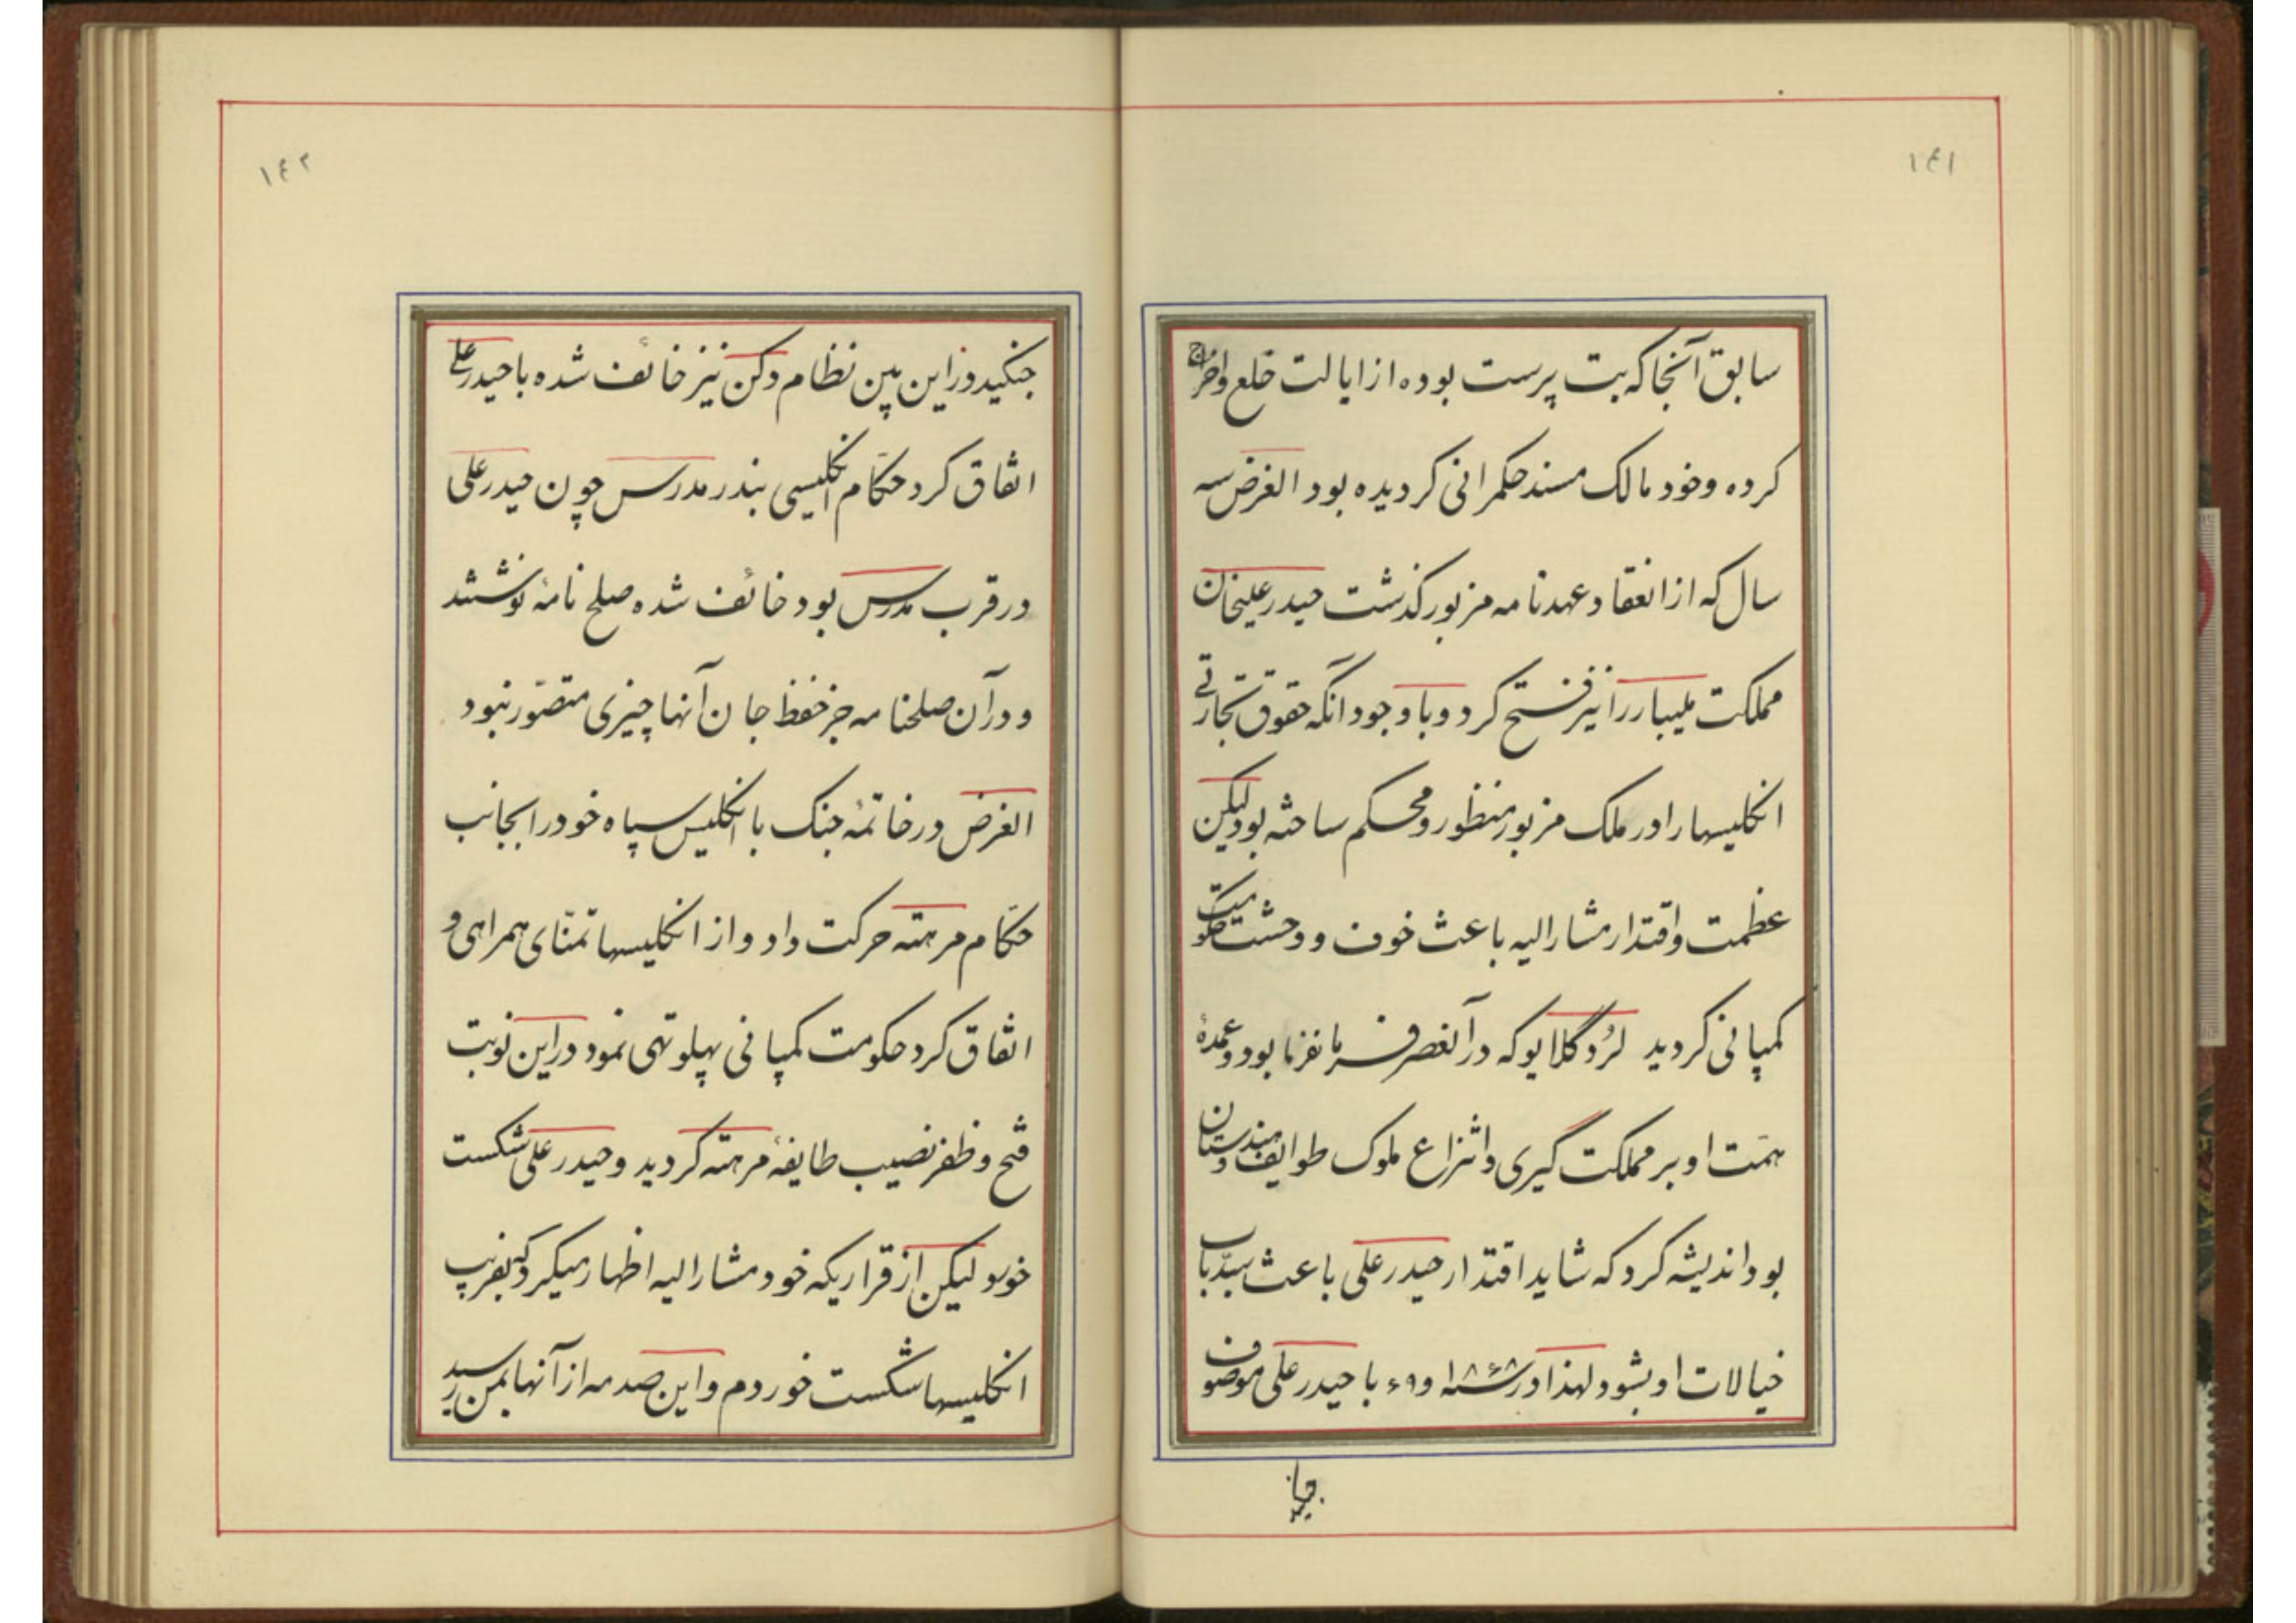 ۱٤۱
سابق آنجا که بت پرست بوده از ایالت خلع و اخراج
کرده و خود مالک مسند حکمرانی کردیده بود الغرض سه
سال که از انعقاد عهدنامه مزبور کذشت حیدر علیخان
مملکت ملیبار را نیز فتح کرد و با وجود انکه حقوق تجارتی
انکلیسها را در ملک مزبور منظور و محکم ساخته بود لیکن
عظمت و اقتدار مشار الیه باعث خوف و وحشت حکومت
کمپانی کردید لرد کلایو که در آنعصر فرمانفرما بود و عمدهٔ
همّت او بر مملکت گیری و انتزاع ملوک طوایف هندوستان
بود اندیشه کرد که شاید اقتدار حیدر علی باعث سدّ باب
خیالات او بشود لهذا در سنه ۱۸۶۸ و ۶۹ با حیدر علی موصوف
جنکید
۱٤۲
جنکید در این بین نظام دکن نیز خائف شده با حیدر علی
اتفاق کرد حکّام انکلیسی بندر مدرس چون حیدر علی
در قرب مدرس بود خائف شده صلح نامهٔ نوشتند
و در آن صلحنامه جز حفظ جان آنها چیزی متصوّر نبود
الغرض در خاتمهٔ جنک با انکلیس سپاه خود را بجانب
حکّام مرهته حرکت داد و از انکلیسها تمنّای همراهی و
اتفاق کرد حکومت کمپانی پهلو تهی نمود در این نوبت
فتح و ظفر نصیب طایفهٔ مرهته کردید و حیدر علی شکست
خورد لیکن از قراریکه خود مشار الیه اظهار میکرد که بفریب
انکلیسها شکست خوردم و این صدمه از آنها بمن رسید